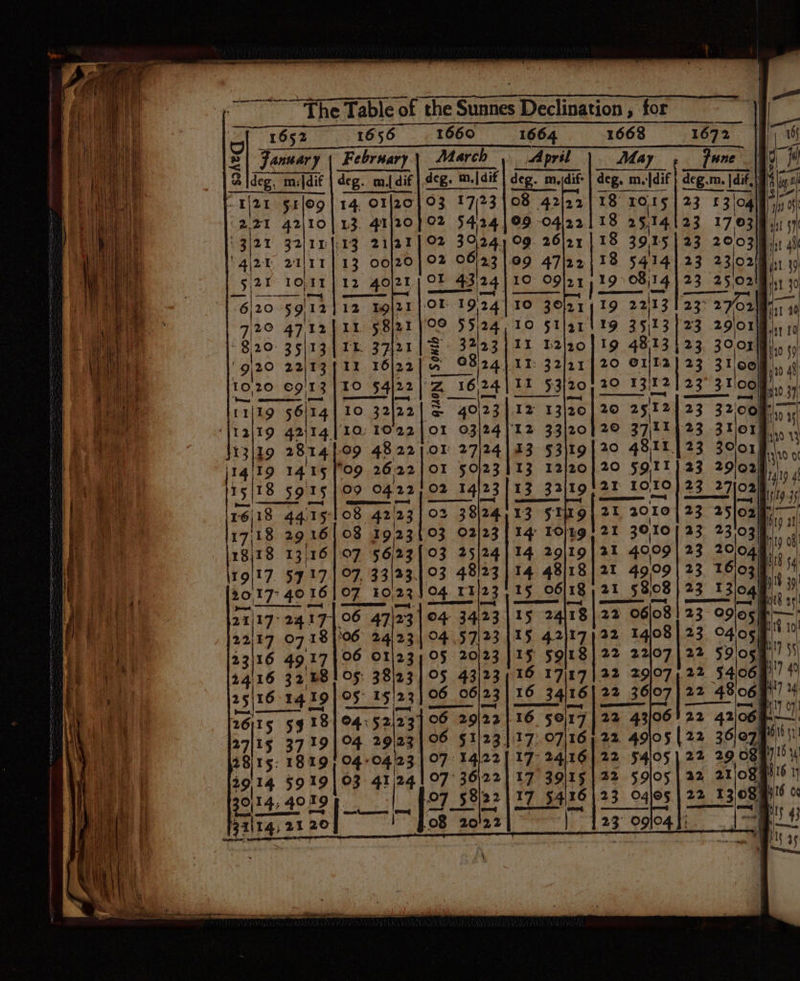 The Table of the Sunnes Declination, for
1652 1656 1660 1664 1668 1672
Dayes January February March April May June
deg. m. dif deg. m. dif deg. m. dif deg. m. dif deg. m. dif deg. m. dif
1 21 51 09 14 01 20 03 17 23 08 42 22 18 10 15 23 13 04
2 21 42 10 13 41 20 02 54 24 09 04 22 18 25 14 23 17 03
3 21 32 11 13 21 21 02 30 24 09 26 21 18 39 15 23 20 03
4 21 21 11 13 00 20 02 06 23 09 47 22 18 54 14 23 23 02
5 21 10 11 12 40 21 01 43 24 10 09 21 19 08 14 23 25 02
6 20 59 12 12 19 21 01 19 24 10 30 21 19 22 13 23 27 02
7 20 47 12 11 58 21 00 55 24 10 51 21 19 35 13 23 29 01
8 20 35 13 11 37 21 32 23 11 12 20 19 48 13 23 30 01
9 20 22 13 11 16 22 South 08 24 11 32 21 20 01 12 23 31 00
10 20 09 13 10 54 22 North 16 24 11 53 20 20 13 12 23 31 00
11 19 56 14 10 32 22 40 23 12 13 20 20 25 12 23 32 00
12 19 42 14 10 10 22 01 03 24 12 33 20 20 37 11 23 31 01
13 19 28 14 09 48 22 01 27 24 13 53 19 20 48 11 23 30 01
14 19 14 15 09 26 22 01 50 23 13 12 20 20 59 11 23 29 02
15 18 59 15 09 04 22 02 14 23 13 32 19 21 10 10 23 27 02
16 18 44 15 08 42 23 02 38 24 13 51 19 21 20 10 23 25 02
17 18 29 16 08 19 23 03 02 23 14 10 19 21 30 10 23 23 03
18 18 13 16 07 56 23 03 25 24 14 29 19 21 40 09 23 20 04
19 17 57 17 07 33 23 03 48 23 14 48 18 21 49 09 23 16 03
20 17 40 16 07 10 23 04 11 23 15 06 18 21 58 08 23 13 04
21 17 24 17 06 47 23 04 34 23 15 24 18 22 06 08 23 09 05
22 17 07 18 06 24 23 04 57 23 15 42 17 22 14 08 23 04 05
23 16 49 17 06 01 23 05 20 23 15 59 18 22 22 07 22 59 05
24 16 32 18 05 38 23 05 43 23 16 17 17 22 29 07 22 54 06
25 16 14 19 05 15 23 06 06 23 16 34 16 22 36 07 22 48 06
26 15 55 18 04 52 23 06 29 22 16 50 17 22 43 06 22 42 06
27 15 37 19 04 29 23 06 51 23 17 07 16 22 49 05 22 36 07
28 15 18 19 04 04 23 07 14 22 17 24 16 22 54 05 22 29 08
29 14 59 19 03 41 24 07 36 22 17 39 15 22 59 05 22 21 08
30 14 40 19 07 58 22 17 54 16 23 04 05 22 13 08
31 14 21 20 08 20 22 23 09 04